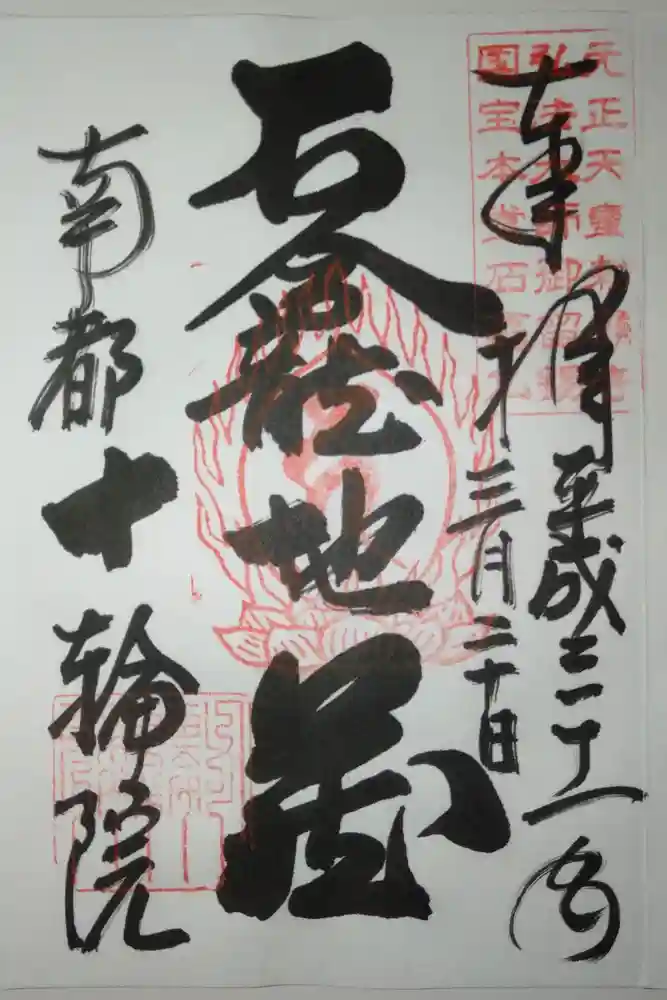 奉拝
平成三十一年
三月二十日
石龕地蔵
南都十輪院
元正天皇勅願
弘法大師御留錫
国宝本堂石